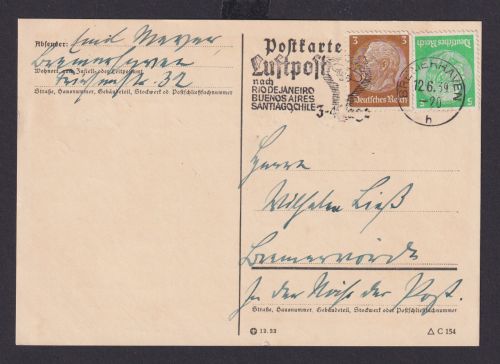 Absender: Emil Meyer
Bremerhaven
Wohnort, auch Zustell- oder Leitpostamt
32
Straße, Hausnummer, Gebäudeteil, Stockwerk od. Postschließfachnummer
Postkarte
Luftpost
nach
RIO DE JANEIRO
BUENOS AIRES
SANTIAGO, CHILE
3-4
3
3
Deutsches Reich
5
5
Deutsches Reich
BREMERHAVEN
12.6.39
-20
h
Herrn
Wilhelm Ließ
Bremervörde
In der Nähe der Post.
Straße, Hausnummer, Gebäudeteil, Stockwerk oder Postschließfachnummer
C 154